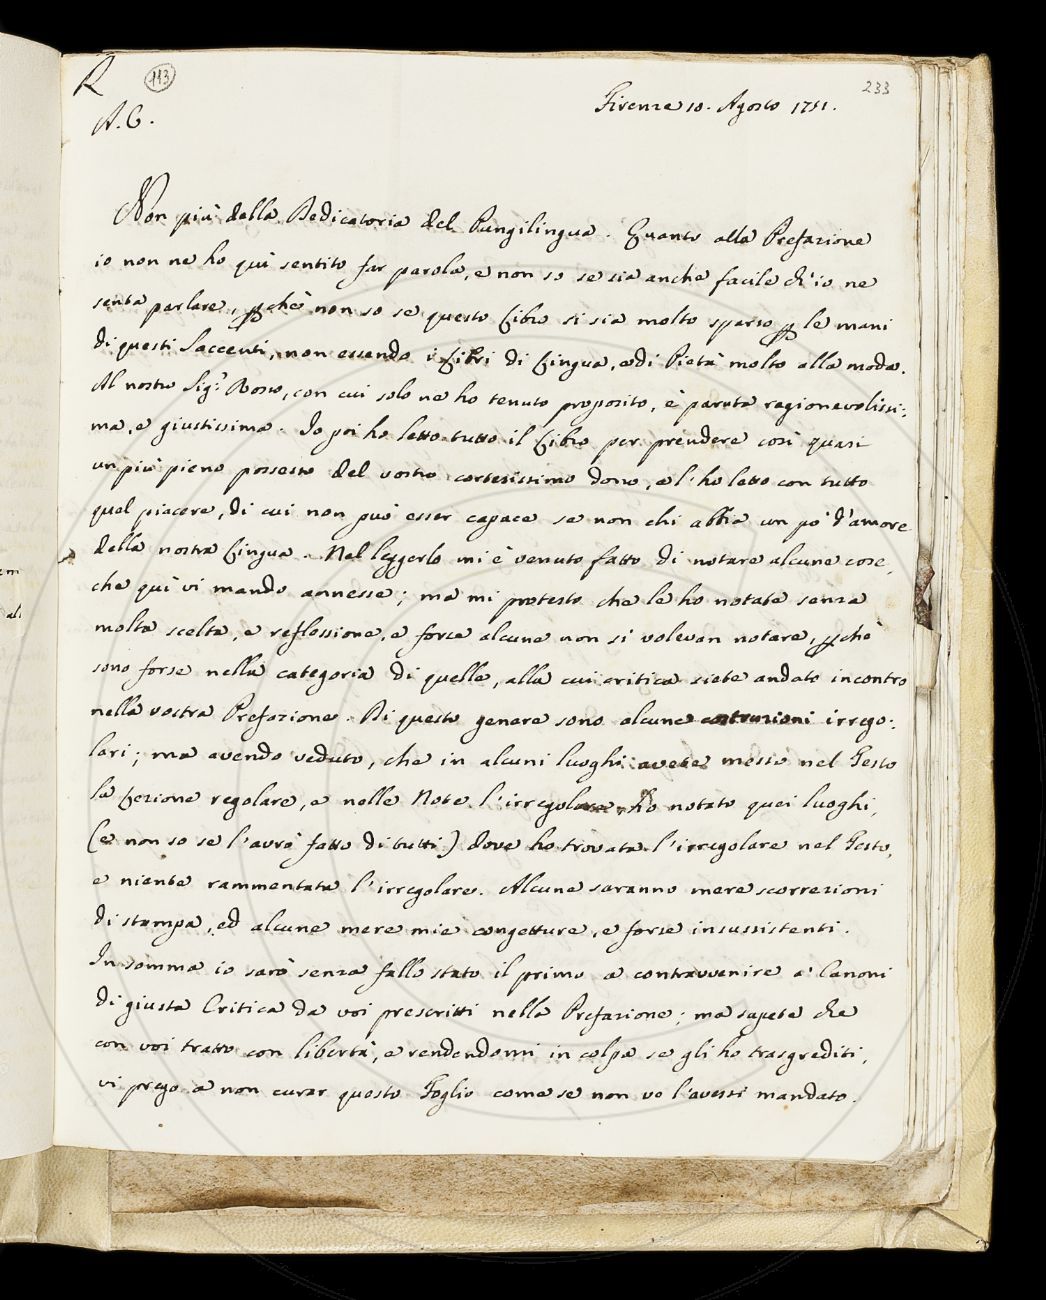 R 113 233
A. C. Firenze 10. Agosto 1751.
Non più della Dedicatoria del Pungilingua. Quanto alla Prefazione
io non ne ho quì sentito far parola, e non so se sia anche facile ch'io ne
senta parlare, pchè non so se questo Libro si sia molto sparso p le mani
di questi Saccenti, non essendo i Libri di Lingua, e di Pietà molto alla moda.
Al nostro Sigr. Bosso, con cui solo ne ho tenuto proposito, è paruta ragionevolissi:
ma, e giustissima. Io poi ho letto tutto il Libro per prendere così quasi
un più pieno possesso del vostro cortesissimo dono, e l'ho letto con tutto
quel piacere, di cui non può esser capace se non chi abbia un po' d'amore
della nostra Lingua. Nel leggerlo mi è venuto fatto di notare alcune cose,
che quì vi mando annesse; ma mi protesto che le ho notate senza
molta scelta, e reflessione, e forse alcune non si volevan notare, pchè
sono forse nella categoria di quelle, alla cui critica siete andato incontro
nella vostra Prefazione. Di questo genere sono alcune costruzioni irrego:
lari; ma avendo veduto, che in alcuni luoghi avete messo nel Testo
la Lezione regolare, e nelle Note l'irregolare, ho notato quei luoghi,
(e non so se l'avrò fatto di tutti) dove ho trovata l'irregolare nel Testo,
e niente rammentata l'irregolare. Alcune saranno mere scorrezioni
di stampa, ed alcune mere mie congetture, e forse insussistenti.
In somma io sarò senza fallo stato il primo a contravvenire a' Canoni
di giusta Critica da voi prescritti nella Prefazione; ma sapete che
con voi tratto con libertà, e rendendomi in colpa se gli ho trasgrediti,
vi prego a non curar questo Foglio come se non ve l'avessi mandato.